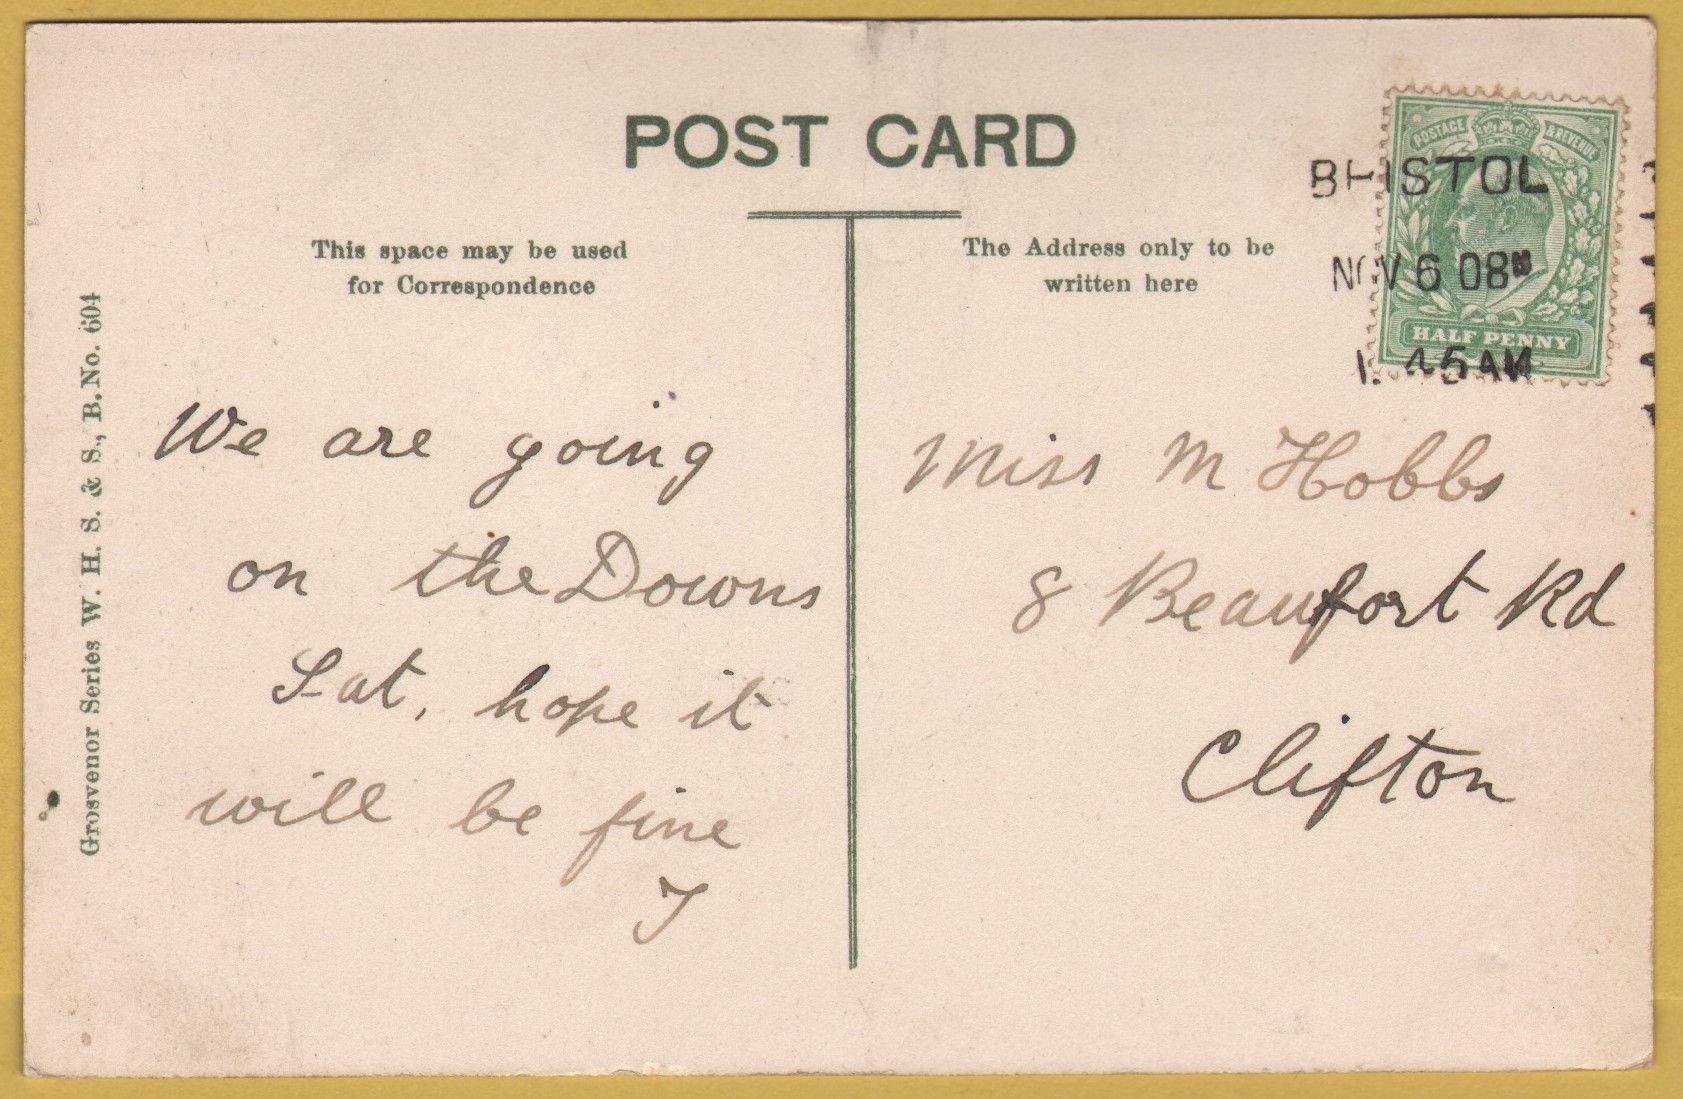 POST CARD
This space may be used
for Correspondence
The Address only to be
written here
POSTAGE & REVENUE
HALF PENNY
BRISTOL
NOV 6 08
45 AM
Grosvenor Series W. H. S. & S., B. No. 604
We are going
on the Downs
Sat, hope it
will be fine
J
Miss M Hobbs
8 Beaufort Rd
Clifton